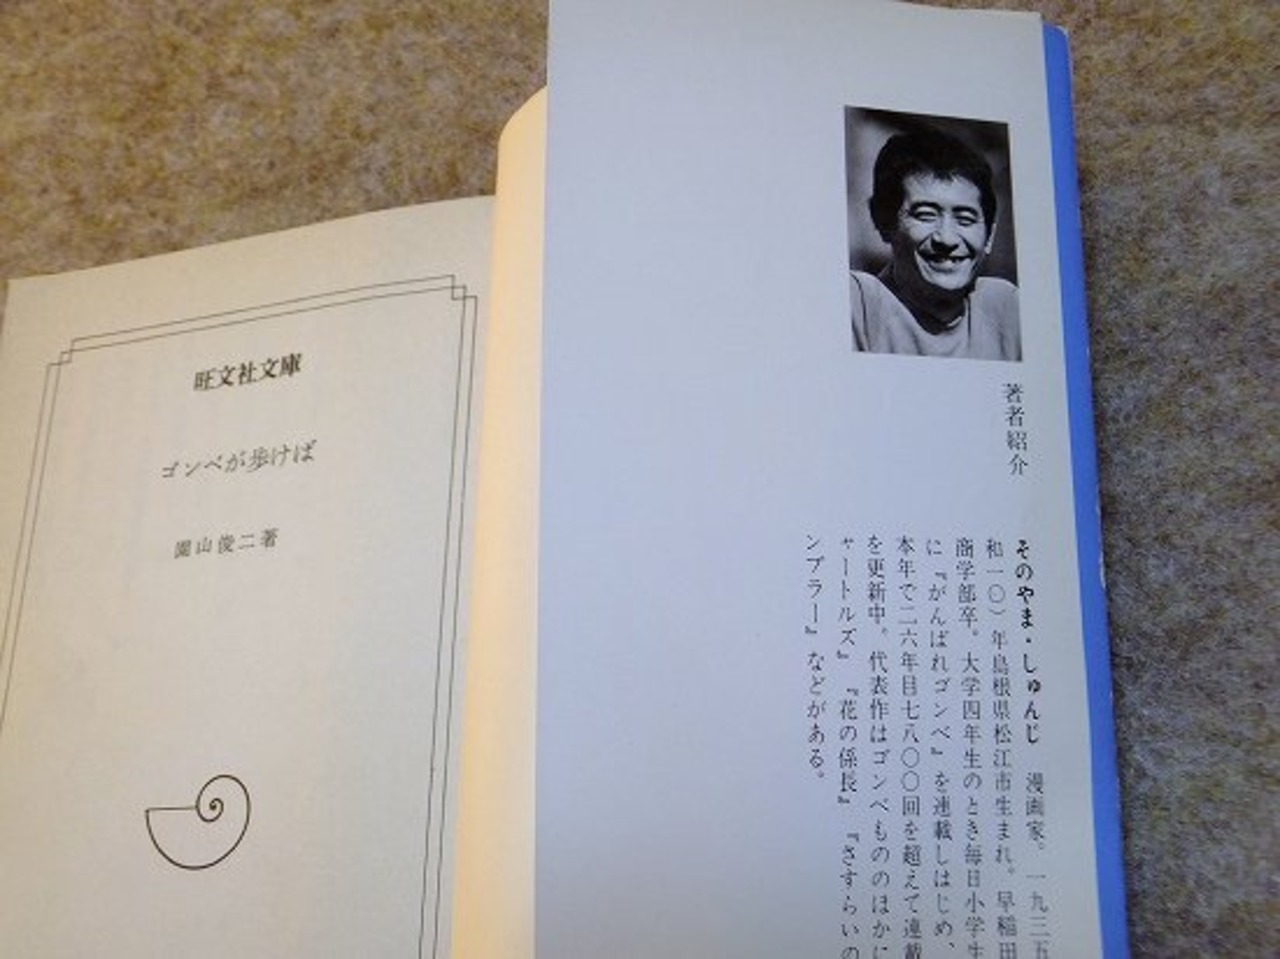 旺文社文庫
ゴンベが歩けば
園山俊二著
著者紹介
そのやま・しゅんじ 漫画家。一九三五
和一〇）年島根県松江市生まれ。早稲田
商学部卒。大学四年生のとき毎日小学生
に『がんばれゴンベ』を連載しはじめ、
本年で二六年目七八〇〇回を超えて連載
を更新中。代表作はゴンベもののほかに
ャートルズ』『花の係長』『さすらいの
ンブラー』などがある。